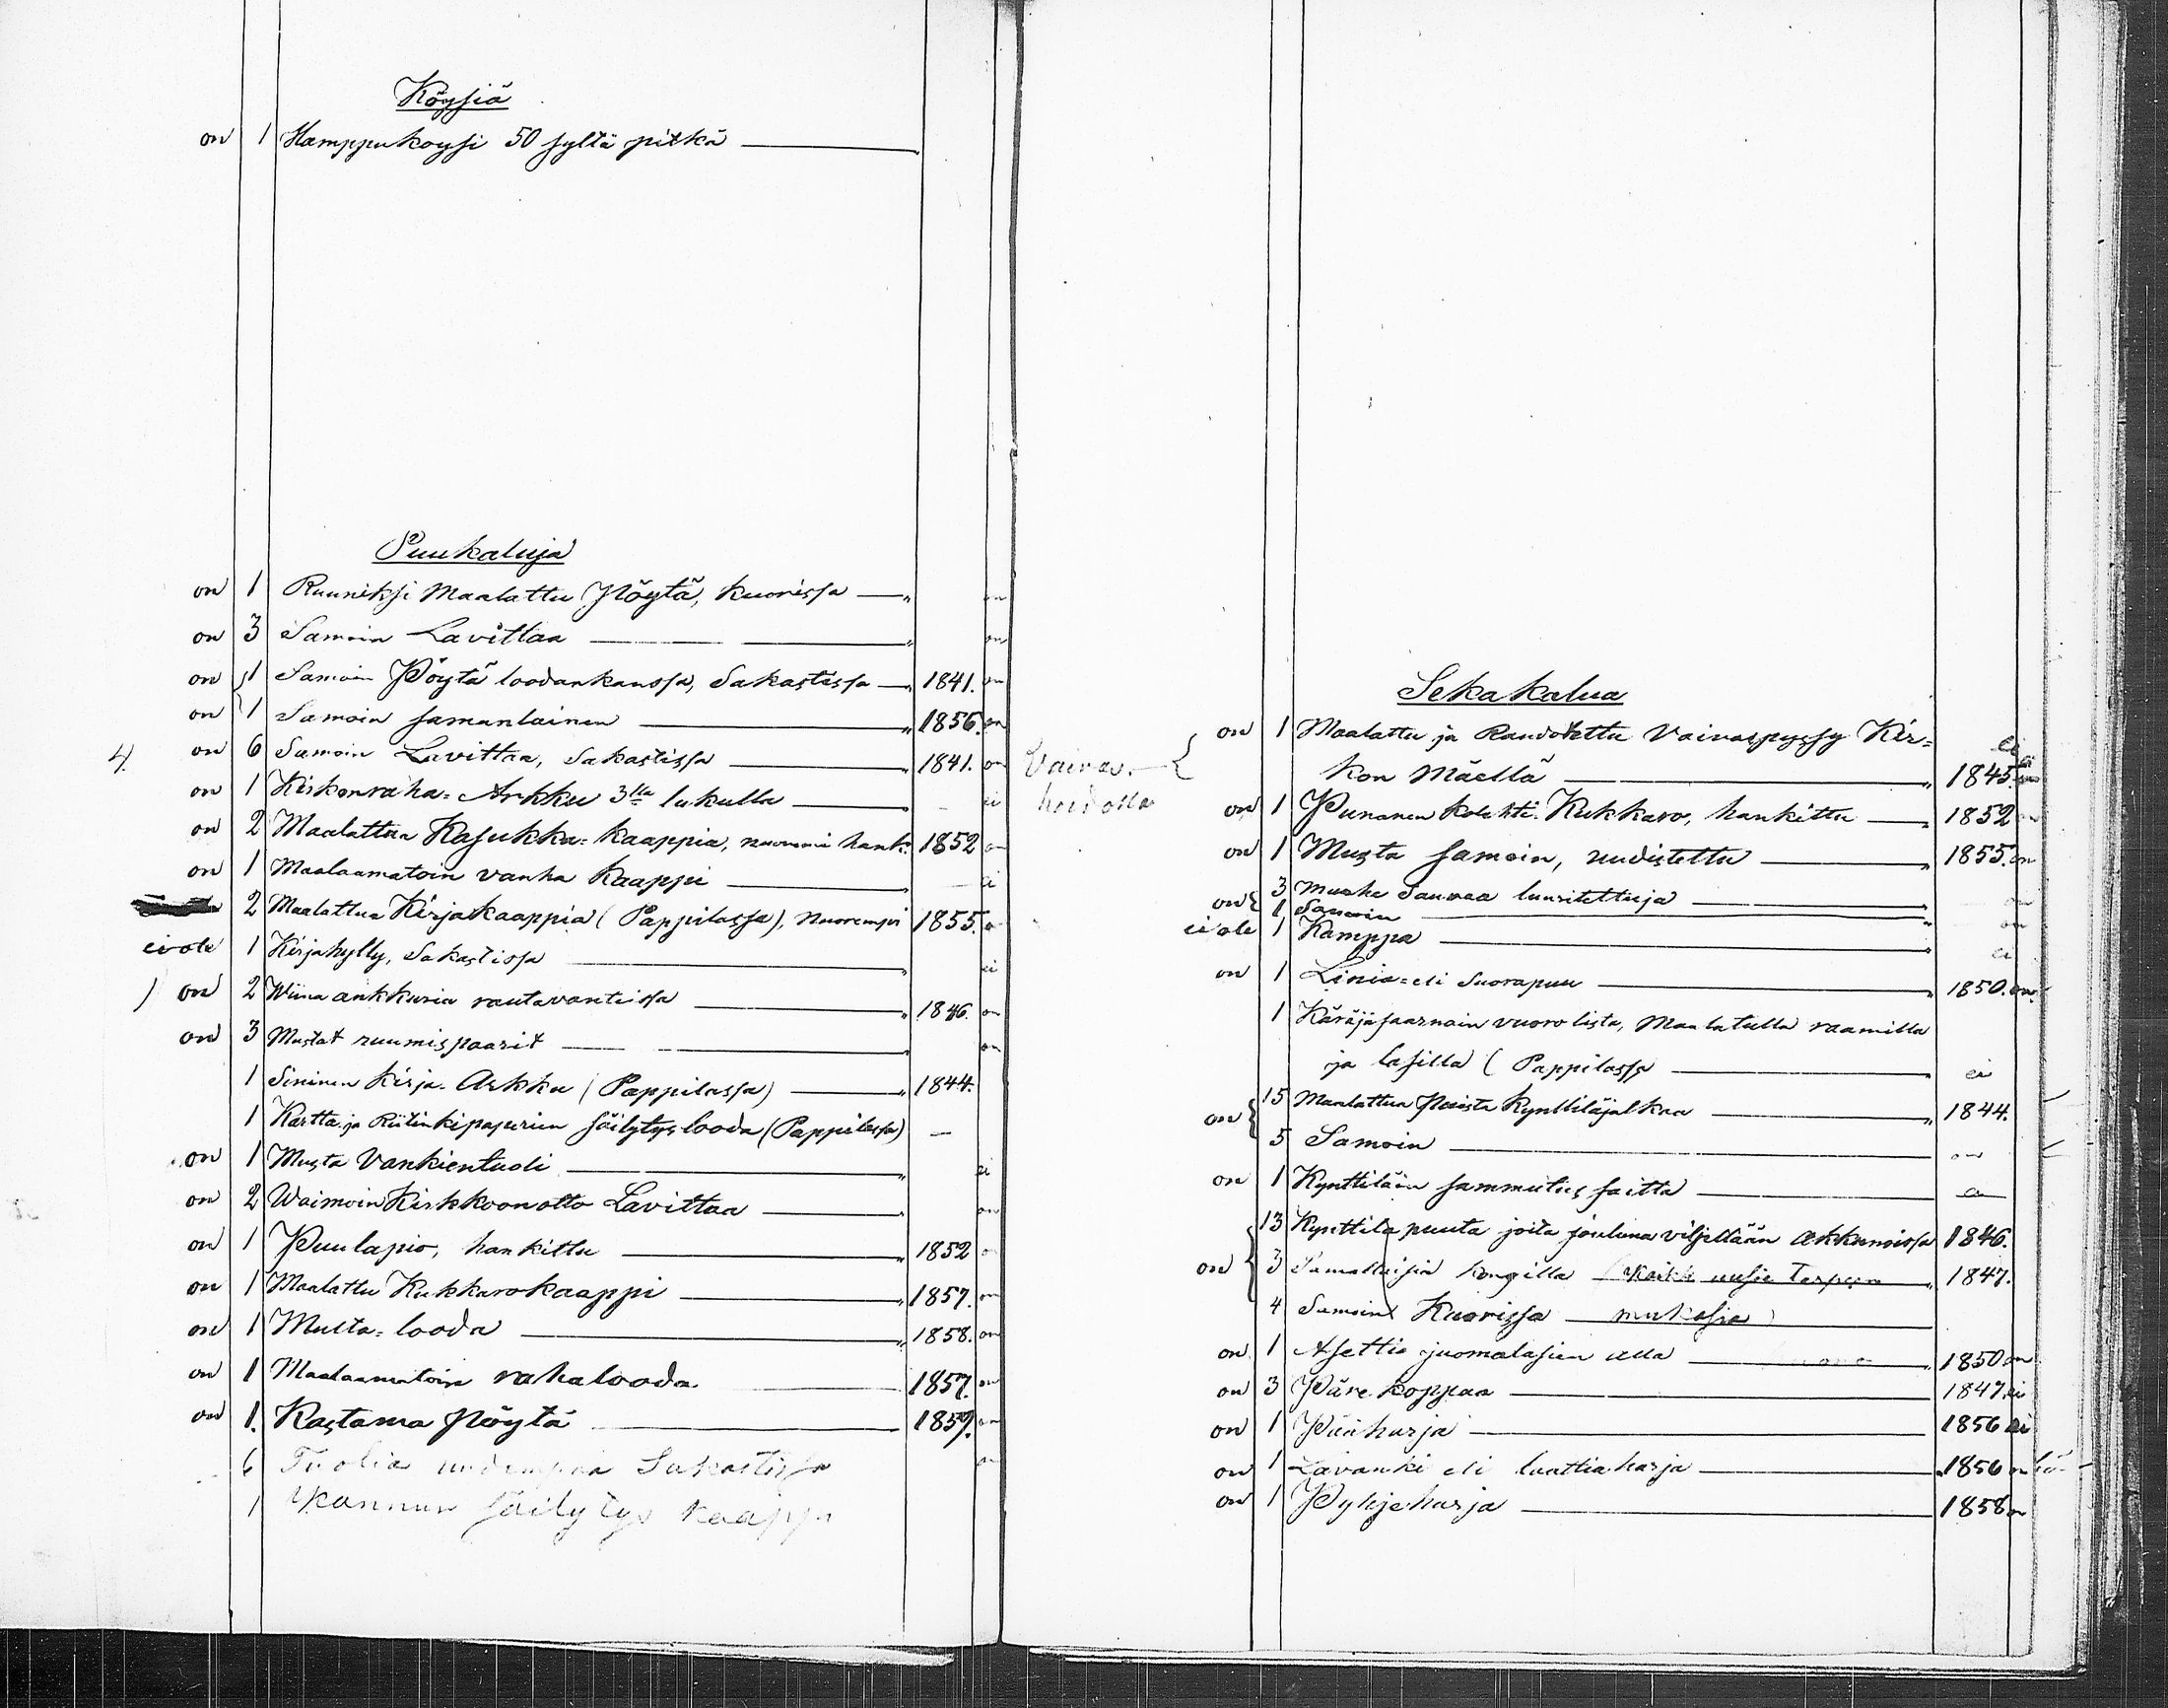 Köysiä
on 1 Hamppukoysi 50 syltä pitkä
Puukaluja
on 1 Ruuniksi Maalattu Pöytä, kuorissa " on
on 3 Samoin Lavittaa " on
on 1 Samoin Pöytä loodankanssa, Sakastissa " 1841. on
on 1 Samoin samanlainen " 1856. on
4. on 6 Samoin Lavittaa, Sakastissa " 1841. on
on 1 Kirkonraha-Arkku 3lla lukulla " – ei
on 2 Maalattua Kasukka-kaappia, nuoremi hank. 1852 on
on 1 Maalaamatoin vanha Kaappi " – ei
2 Maalattua Kirjakaappia (Pappilassa), Nuorempi 1855. on
ei ole 1 Kirjahylly, Sakastissa " ei
) on 2 Wiina ankkuria rautavanteissa " 1846. on
on 3 Mustat ruumispaarit " on
1 Sininen Kirja-Arkku (Pappilassa) " 1844.
1 Kartta ja Riitinkipapurien säilytys looda (Pappilassa) –
on 1 Musta Vankientuoli " ei
on 2 Waimoin Kirkkoonotto Lavittaa " on
on 1 Puulapio, hankittu " 1852 on
on 1 Maalattu Kukkarokaappi " 1857. on
on 1 Multa-looda " 1858. on
on 1 Maalaamatoin rahalooda 1857. on
on 1. Kastama Pöytä 1859. on
6 Tuolia uudempaa Sakastissa on
1 Kannun säilytys kaappi
Sekakalua
on 1 Maalattu ja Raudotettu Vaivaspyssy Kir=
Vaivas- { kon Mäellä " 1845. ei
hoidolla
on 1 Punanen Kolehti-Kukkaro, hankittu " 1852 on
on 1 Musta samoin, uudistettu " 1855. on
on { 3 Sauvaa luuritettuja " on
1 Samoin " on
ei ole 1 Kamppa " ei
on 1 Linia- eli Suorapuu " 1850. on
1 Käräjäsaarnain vuoro lista, Maalatulla raamilla
ja lasilla (Pappilassa ei
on { 15 Maalattua Puista Kynttiläjalkaa " 1844.
5 Samoin on
on 1 Kynttiläin sammutus saitta
13 Kynttilä puuta joita jouluna viljellään akkunoissa 1846.
on { 3 Samallaisia kongilla (Kaikki uusia Tarpeen 1847.
4 Samoin Kuorissa mukasia)
on 1 Asettia juomalasien alla " 1850 on
on 3 Päre koppaa 1847. ei
on 1 Pääharja 1856 ei
on 1 Lavanki eli luattiaharja 1856 on
on 1 Pyhjeharja 1858 on